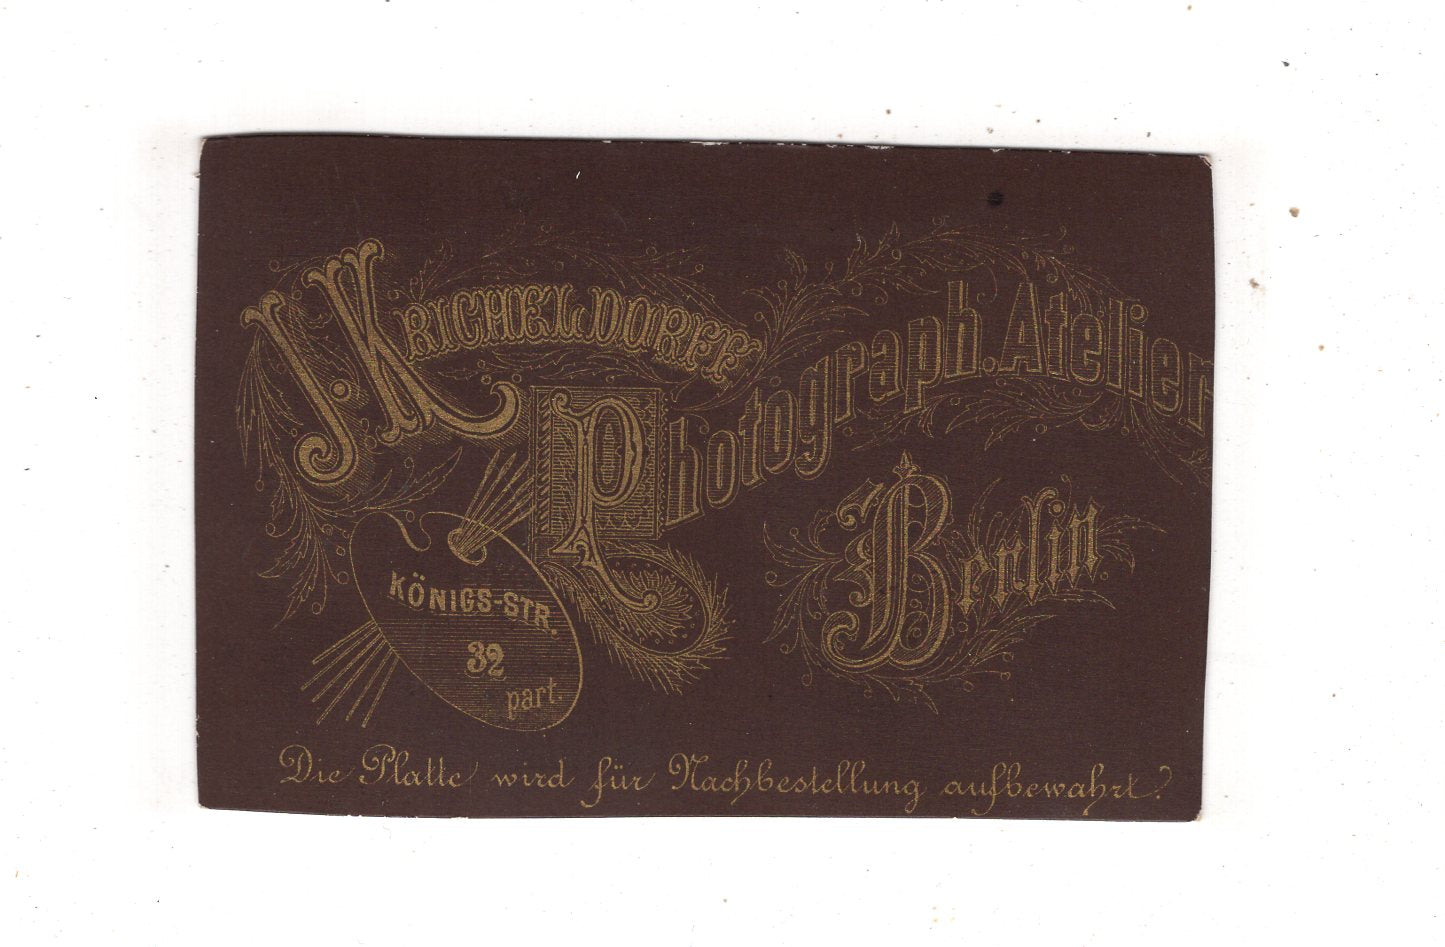 J. KRICHELDORFF
Photograph. Atelier
Berlin
KÖNIGS-STR.
32
part.
Die Platte wird für Nachbestellung aufbewahrt.